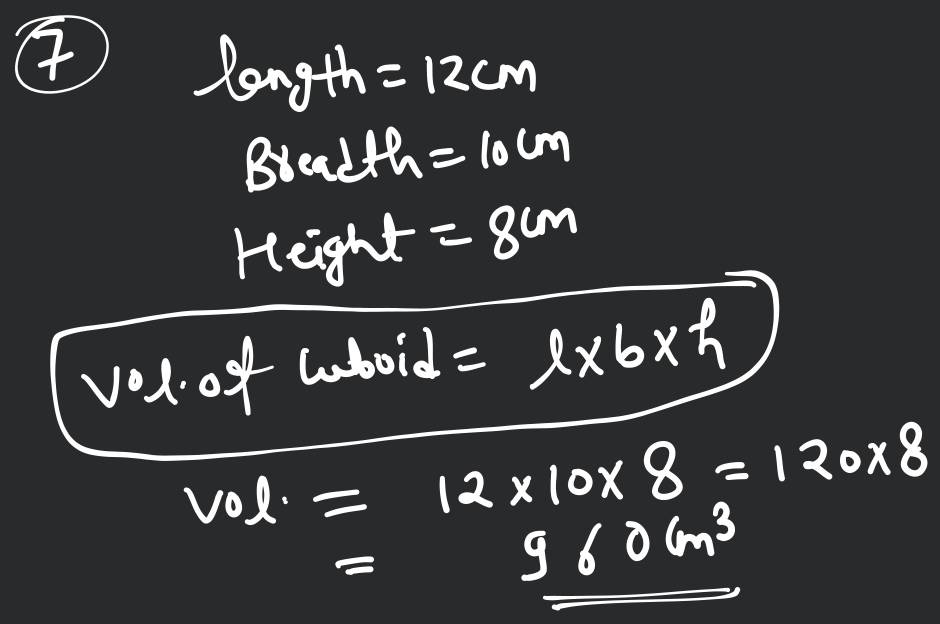 7
length = 12cm
Breadth = 10cm
Height = 8cm
Vol. of cuboid = l×b×h
Vol. = 12×10×8 = 120×8
= 960cm³